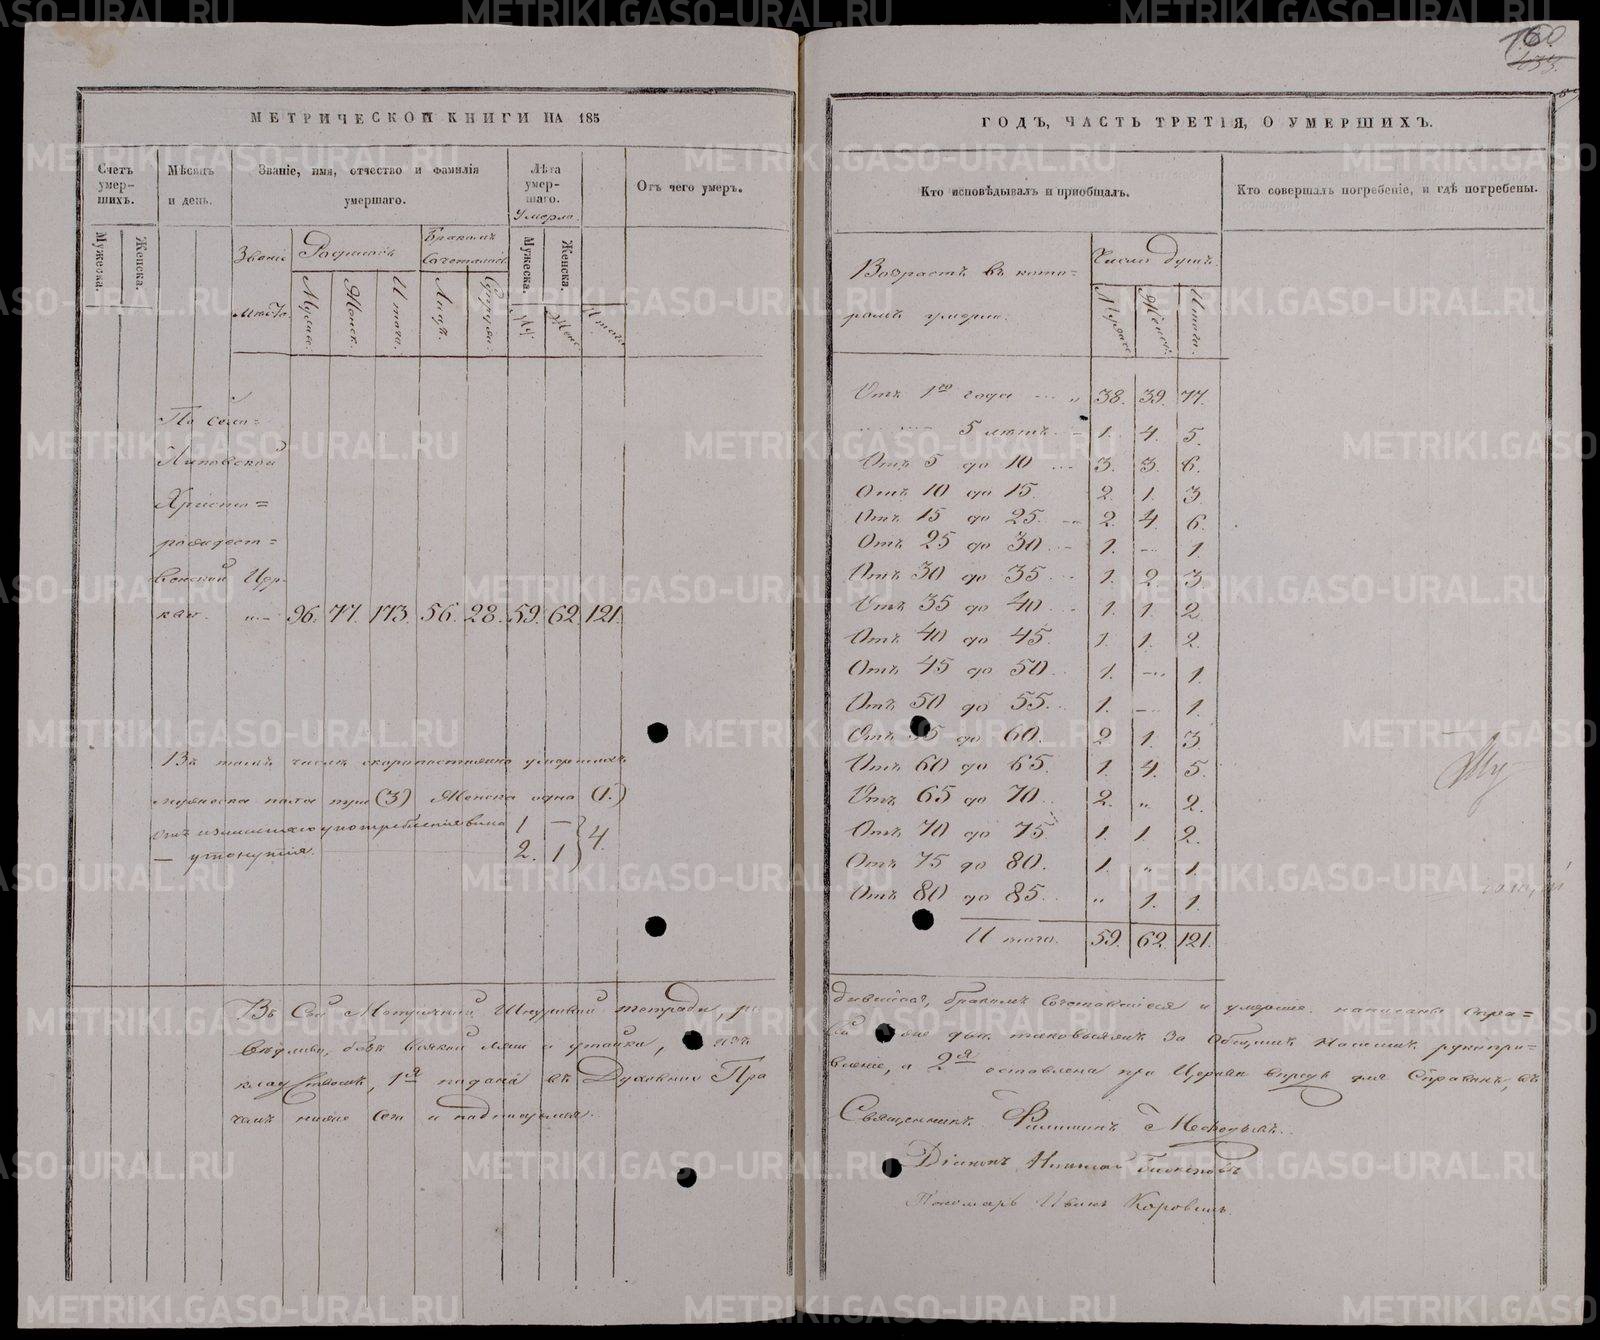 160
МЕТРИЧЕСКОЙ КНИГИ НА 185
Счетъ умер-
шихъ.
Мѣсяцъ
и день.
Званіе, имя, отчество и фамилія
умершаго.
Лѣта
умер-
шаго.
Умерло.
Отъ чего умеръ.
Мужеска.
Женска.
Званіе
мѣста.
Родилось
Мужес.
Женск.
Итого.
Бракомъ
Сочеталось
Мужеска.
Женска.
По село=
Липовской
Христо=
рождест=
венской Цер-
кви. 96. 77. 173. 56. 28. 59. 62. 121.
Въ томъ числѣ скоропостижно умершихъ
мужеска пола три (3) Женска одна (1.)
отъ излишняго употребленія вина 1 —
— утонутія. 2. 1 } 4.
Въ Сей Метричной Шнуровой тетради, ро
ведливо, безъ всякой лжи и утайки,
1я подана въ Духовное Пра
чемъ ниже сего и подписуемся.
ГОДЪ, ЧАСТЬ ТРЕТІЯ, О УМЕРШИХЪ.
Кто исповѣдывалъ и пріобщалъ.
Кто совершалъ погребеніе, и гдѣ погребены.
Возрастъ въ кото=
ромъ умерли.
Число душъ.
Мужеск.
Женск.
Итого.
Отъ 1го года 38. 39. 77.
5 лѣтъ. 1. 4. 5.
Отъ 5 до 10 3. 3. 6.
Отъ 10 до 15. 2. 1. 3
Отъ 15 до 25. 2. 4. 6.
Отъ 25 до 30 1. — 1.
Отъ 30 до 35 1. 2. 3
Отъ 35 до 40 1. 1. 2.
Отъ 40 до 45 1. 1. 2.
Отъ 45 до 50. 1. — 1.
Отъ 50 до 55. 1. — 1.
Отъ 55 до 60. 2 1. 3
Отъ 60 до 65. 1. 4. 5.
Отъ 65 до 70 2. „ 2.
Отъ 70 до 75 1. 1. 2.
Отъ 75 до 80. 1. „ 1.
Отъ 80 до 85. „ 1. 1.
Итого. 59. 62. 121.
дившіеся, бракомъ Сочетавшіеся и умершіе написаны спра=
за общимъ нашимъ рукопри=
вленіе, а 2я оставлена при Церкви впредь для Справокъ, въ
Священникъ
Діаконъ Николай
Пономарь Иванъ Коровинъ.
METRIKI.GASO-URAL.RU